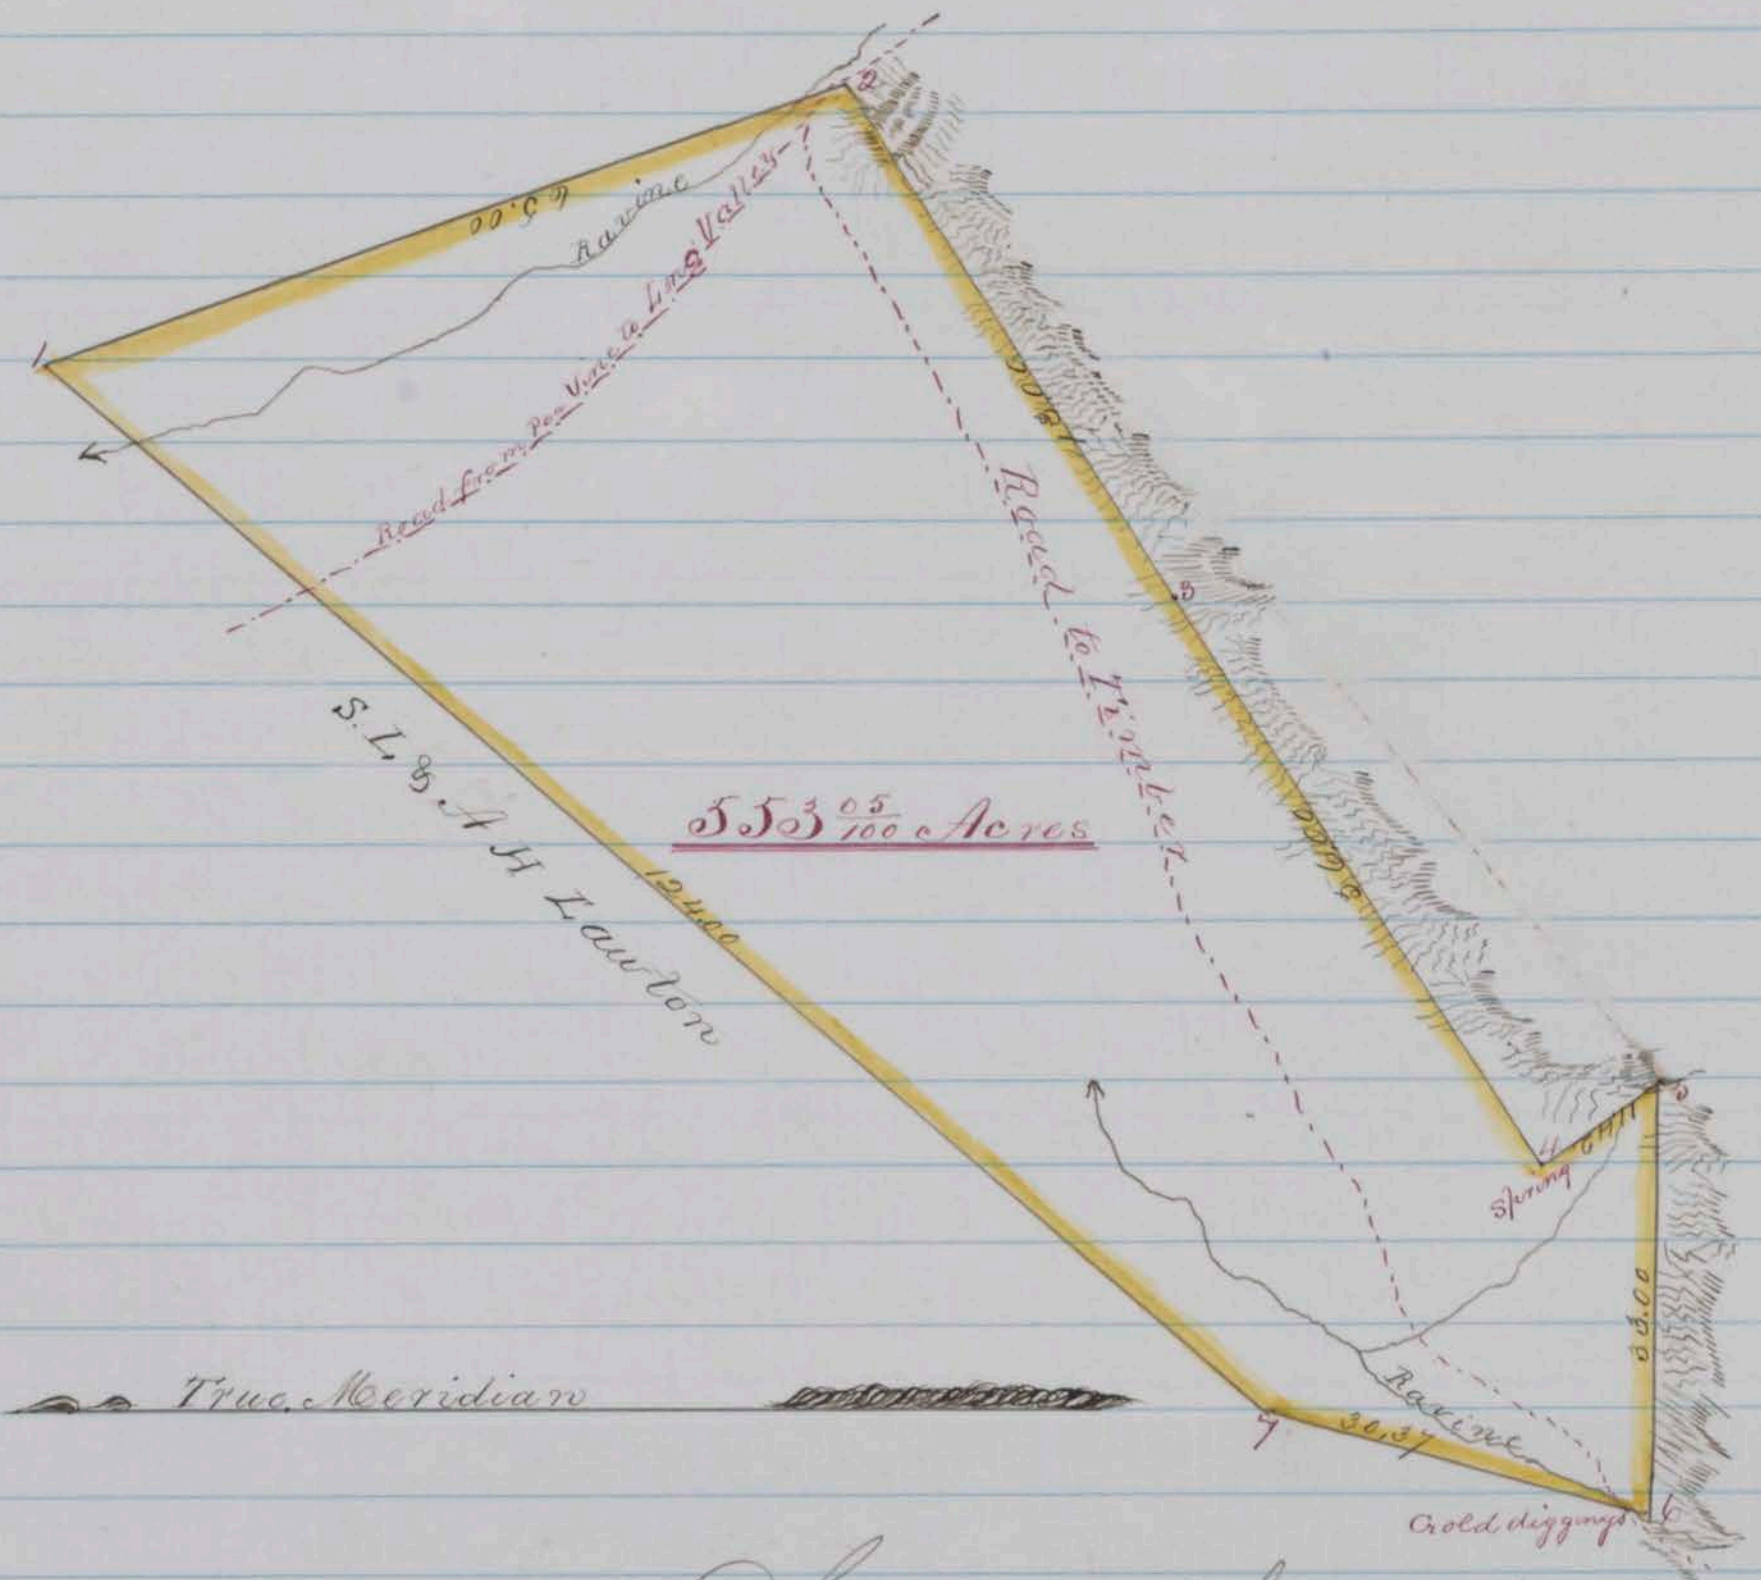 2
65.00
Ravine
Road from Pea Vine to Long Valley
1
48.00
Road to Timber
3
S. L, & A H Lawton
553 05/100 Acres
124.00
5
4
Spring
33.00
True Meridian
7
30,37
Ravine
Gold diggings
6